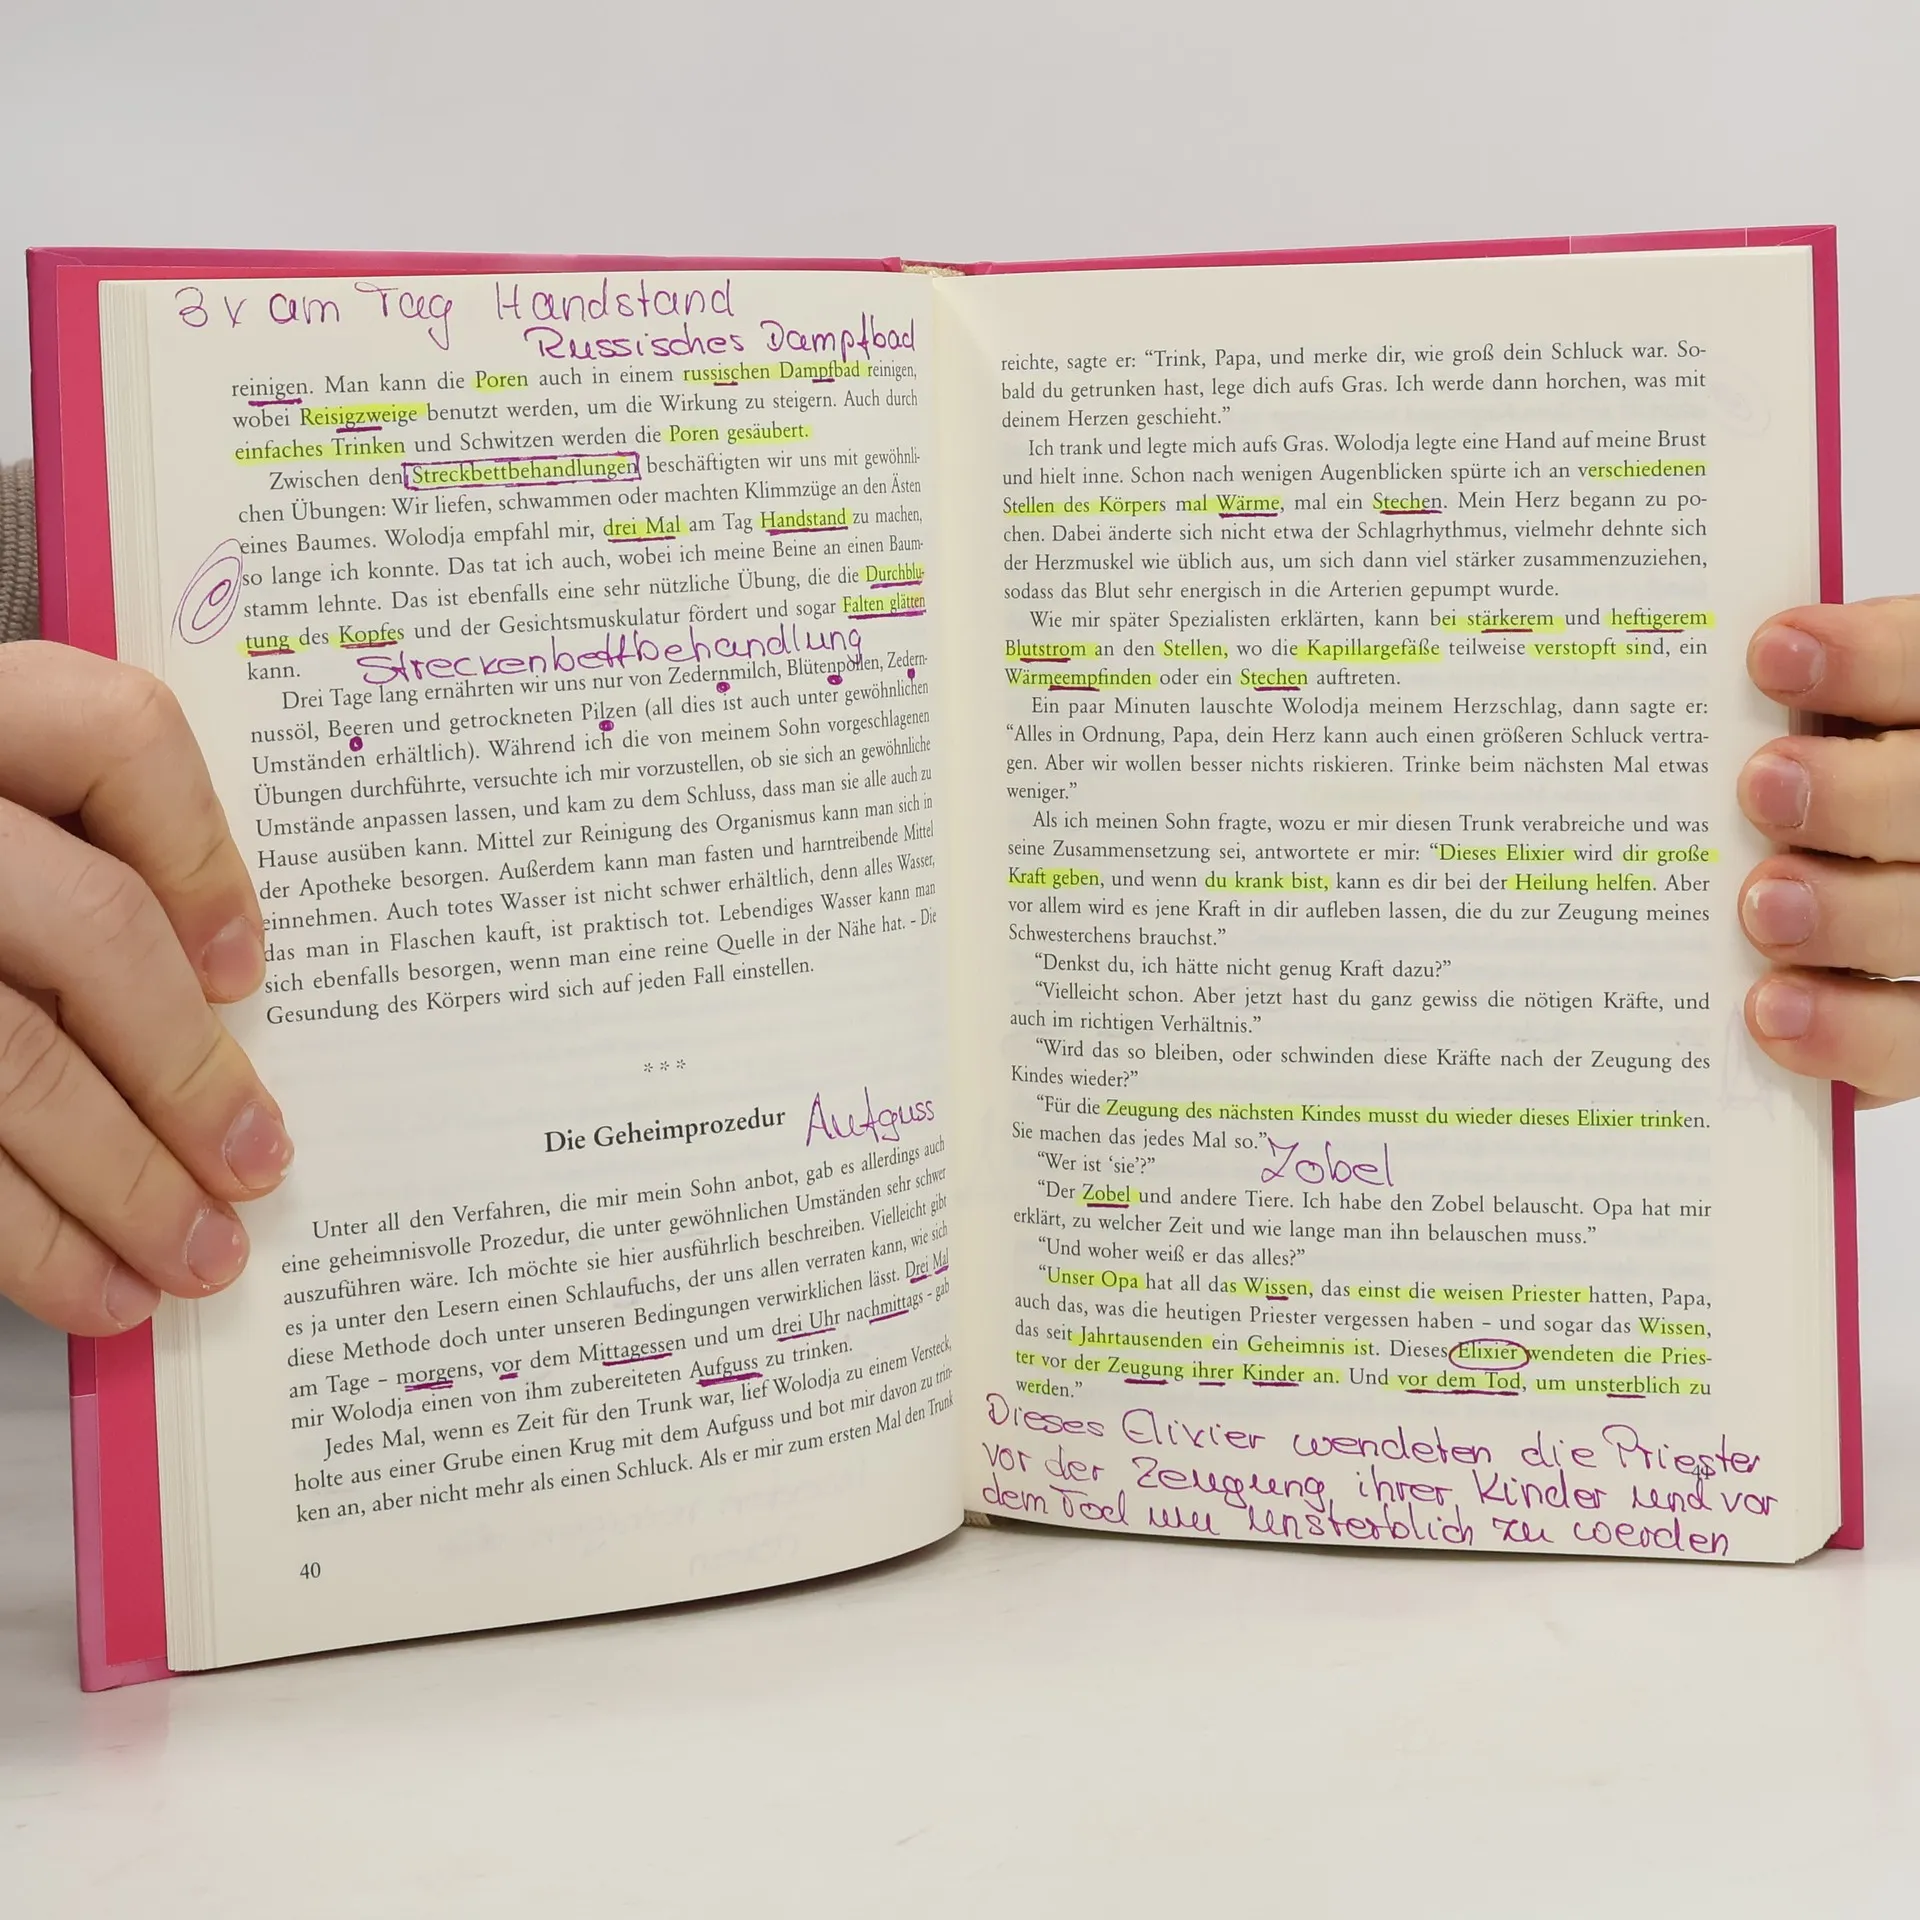 3 x am Tag Handstand
Russisches Dampfbad
reinigen. Man kann die Poren auch in einem russischen Dampfbad reinigen,
wobei Reisigzweige benutzt werden, um die Wirkung zu steigern. Auch durch
einfaches Trinken und Schwitzen werden die Poren gesäubert.
Zwischen den Streckbettbehandlungen beschäftigten wir uns mit gewöhnli-
chen Übungen: Wir liefen, schwammen oder machten Klimmzüge an den Ästen
eines Baumes. Wolodja empfahl mir, drei Mal am Tag Handstand zu machen,
so lange ich konnte. Das tat ich auch, wobei ich meine Beine an einen Baum-
stamm lehnte. Das ist ebenfalls eine sehr nützliche Übung, die die Durchblu-
tung des Kopfes und der Gesichtsmuskulatur fördert und sogar Falten glätten
kann.
Streckenbettbehandlung
Drei Tage lang ernährten wir uns nur von Zedernmilch, Blütenpollen, Zedern-
nussöl, Beeren und getrockneten Pilzen (all dies ist auch unter gewöhnlichen
Umständen erhältlich). Während ich die von meinem Sohn vorgeschlagenen
Übungen durchführte, versuchte ich mir vorzustellen, ob sie sich an gewöhnliche
Umstände anpassen lassen, und kam zu dem Schluss, dass man sie alle auch zu
Hause ausüben kann. Mittel zur Reinigung des Organismus kann man sich in
der Apotheke besorgen. Außerdem kann man fasten und harntreibende Mittel
einnehmen. Auch totes Wasser ist nicht schwer erhältlich, denn alles Wasser,
das man in Flaschen kauft, ist praktisch tot. Lebendiges Wasser kann man
sich ebenfalls besorgen, wenn man eine reine Quelle in der Nähe hat. - Die
Gesundung des Körpers wird sich auf jeden Fall einstellen.
***
Die Geheimprozedur Aufguss
Unter all den Verfahren, die mir mein Sohn anbot, gab es allerdings auch
eine geheimnisvolle Prozedur, die unter gewöhnlichen Umständen sehr schwer
auszuführen wäre. Ich möchte sie hier ausführlich beschreiben. Vielleicht gibt
es ja unter den Lesern einen Schlaufuchs, der uns allen verraten kann, wie sich
diese Methode doch unter unseren Bedingungen verwirklichen lässt. Drei Mal
am Tage – morgens, vor dem Mittagessen und um drei Uhr nachmittags - gab
mir Wolodja einen von ihm zubereiteten Aufguss zu trinken.
Jedes Mal, wenn es Zeit für den Trunk war, lief Wolodja zu einem Versteck,
holte aus einer Grube einen Krug mit dem Aufguss und bot mir davon zu trin-
ken an, aber nicht mehr als einen Schluck. Als er mir zum ersten Mal den Trunk
40
reichte, sagte er: “Trink, Papa, und merke dir, wie groß dein Schluck war. So-
bald du getrunken hast, lege dich aufs Gras. Ich werde dann horchen, was mit
deinem Herzen geschieht.”
Ich trank und legte mich aufs Gras. Wolodja legte eine Hand auf meine Brust
und hielt inne. Schon nach wenigen Augenblicken spürte ich an verschiedenen
Stellen des Körpers mal Wärme, mal ein Stechen. Mein Herz begann zu po-
chen. Dabei änderte sich nicht etwa der Schlagrhythmus, vielmehr dehnte sich
der Herzmuskel wie üblich aus, um sich dann viel stärker zusammenzuziehen,
sodass das Blut sehr energisch in die Arterien gepumpt wurde.
Wie mir später Spezialisten erklärten, kann bei stärkerem und heftigerem
Blutstrom an den Stellen, wo die Kapillargefäße teilweise verstopft sind, ein
Wärmeempfinden oder ein Stechen auftreten.
Ein paar Minuten lauschte Wolodja meinem Herzschlag, dann sagte er:
“Alles in Ordnung, Papa, dein Herz kann auch einen größeren Schluck vertra-
gen. Aber wir wollen besser nichts riskieren. Trinke beim nächsten Mal etwas
weniger.”
Als ich meinen Sohn fragte, wozu er mir diesen Trunk verabreiche und was
seine Zusammensetzung sei, antwortete er mir: “Dieses Elixier wird dir große
Kraft geben, und wenn du krank bist, kann es dir bei der Heilung helfen. Aber
vor allem wird es jene Kraft in dir aufleben lassen, die du zur Zeugung meines
Schwesterchens brauchst.”
“Denkst du, ich hätte nicht genug Kraft dazu?”
“Vielleicht schon. Aber jetzt hast du ganz gewiss die nötigen Kräfte, und
auch im richtigen Verhältnis.”
“Wird das so bleiben, oder schwinden diese Kräfte nach der Zeugung des
Kindes wieder?”
“Für die Zeugung des nächsten Kindes musst du wieder dieses Elixier trinken.
Sie machen das jedes Mal so.”
“Wer ist ‘sie’?” Zobel
“Der Zobel und andere Tiere. Ich habe den Zobel belauscht. Opa hat mir
erklärt, zu welcher Zeit und wie lange man ihn belauschen muss.”
“Und woher weiß er das alles?”
“Unser Opa hat all das Wissen, das einst die weisen Priester hatten, Papa,
auch das, was die heutigen Priester vergessen haben – und sogar das Wissen,
das seit Jahrtausenden ein Geheimnis ist. Dieses Elixier wendeten die Pries-
ter vor der Zeugung ihrer Kinder an. Und vor dem Tod, um unsterblich zu
werden.”
Dieses Elixier wendeten die Priester
vor der Zeugung ihrer Kinder und vor
dem Tod um unsterblich zu werden